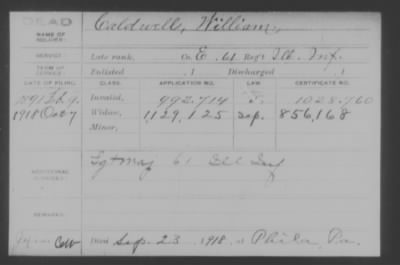 DEAD
NAME OF SOLDIER: Caldwell, William,
SERVICE: Late rank, Co. E, 61 Reg't Ill. Inf.
TERM OF SERVICE: Enlisted , 1 Discharged , 1
DATE OF FILING. CLASS. APPLICATION NO. LAW. CERTIFICATE NO.
1891 Feb 9. Invalid, 992,714 1028,760
1918 Oct 7 Widow, 1,129,125 Sep. 856,168
Minor,
ADDITIONAL SERVICES: Sgt Maj 61 Ill Inf
REMARKS:
Died Sep. 23 1918, at Phila, Pa.